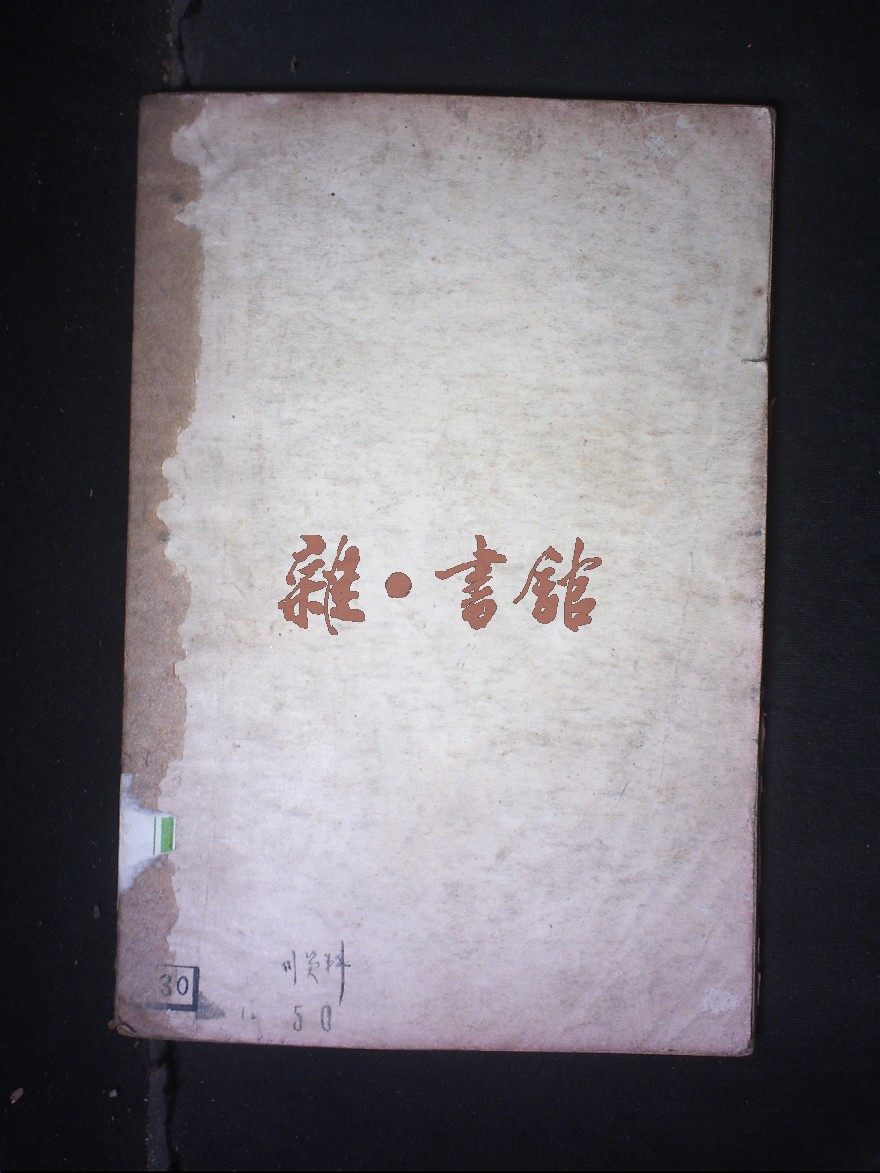 雜·書館
30
资料
50